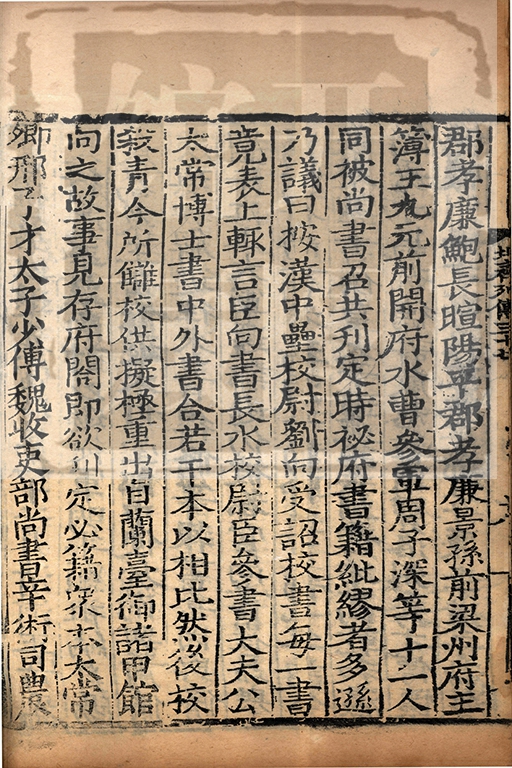 北齊列傳三十七
郡孝廉鮑長暄陽平郡孝廉景孫前梁州府主
簿王九元前開府水曹參軍周子深等十一人
同被尚書召共刊定時祕府書籍紕繆者多遜
乃議曰按漢中壘校尉劉向受詔校書每一書
竟表上輒言臣向書長水校尉臣參書大夫公
太常博士書中外書合若干本以相比然後校
殺青今所讎校供擬極重出自蘭臺御諸甲館
向之故事見存府閣即欲刊定必籍眾本太常
卿邢子才太子少傅魏收吏部尚書辛術司農